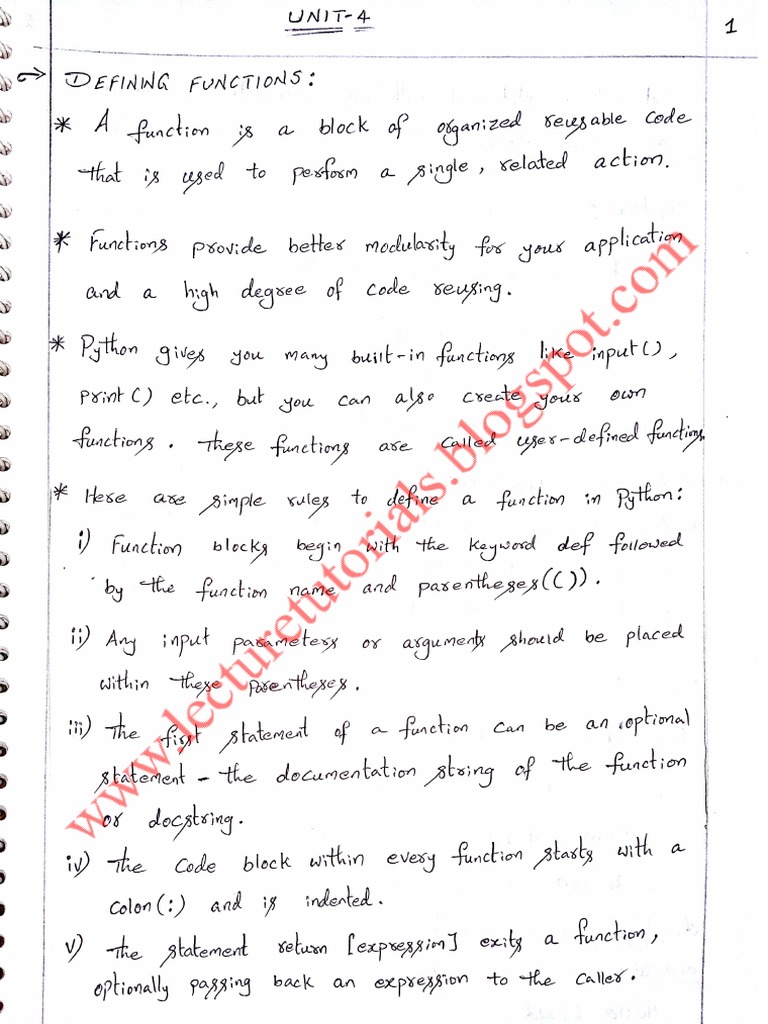 UNIT-4
1
→ DEFINING FUNCTIONS:
* A function is a block of organized reusable code
that is used to perform a single, related action.
* Functions provide better modularity for your application
and a high degree of code reusing.
* Python gives you many built-in functions like input(),
print() etc., but you can also create your own
functions. These functions are called user-defined functions.
* Here are simple rules to define a function in Python:
i) Function blocks begin with the keyword def followed
by the function name and parentheses(()).
ii) Any input parameters or arguments should be placed
within these parentheses.
iii) The first statement of a function can be an optional
statement - the documentation string of the function
or docstring.
iv) The code block within every function starts with a
colon(:) and is indented.
v) The statement return [expression] exits a function,
optionally passing back an expression to the caller.
www.lecturetutorials.blogspot.com